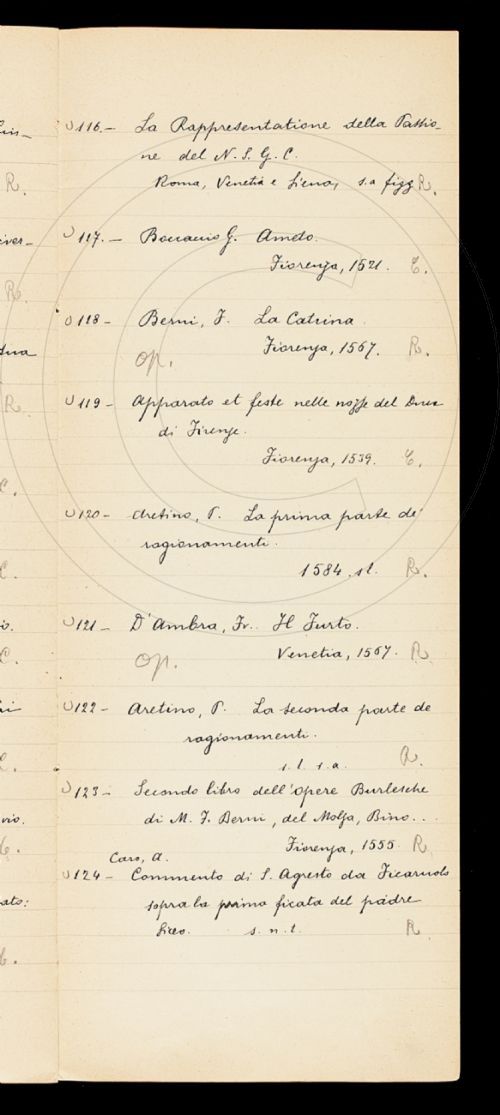 116.- La Rappresentatione della Passio-
ne del N. S. G. C.
Roma, Venetia e Siena, s.a figg R.
117.- Boccaccio G. Ameto.
Fiorenza, 1521. C.
118 - Berni, F. La Catrina.
op. Fiorenza, 1567. R.
119 - Apparato et feste nelle nozze del Duca
di Firenze.
Fiorenza, 1539. C.
120 - Aretino, P. La prima parte de'
ragionamenti.
1584. s.l. R.
121 - D'Ambra, Fr. Il Furto.
op. Venetia, 1567. R.
122 - Aretino, P. La seconda parte de
ragionamenti.
s. l. s. a. R.
123 - Secondo libro dell'opere Burlesche
di M. F. Berni, del Molza, Bino...
Fiorenza, 1555. R.
Caro, A.
124 - Commento di S. Agresto da Ficaruolo
sopra la prima ficata del padre
Siceo. s. n. t. R